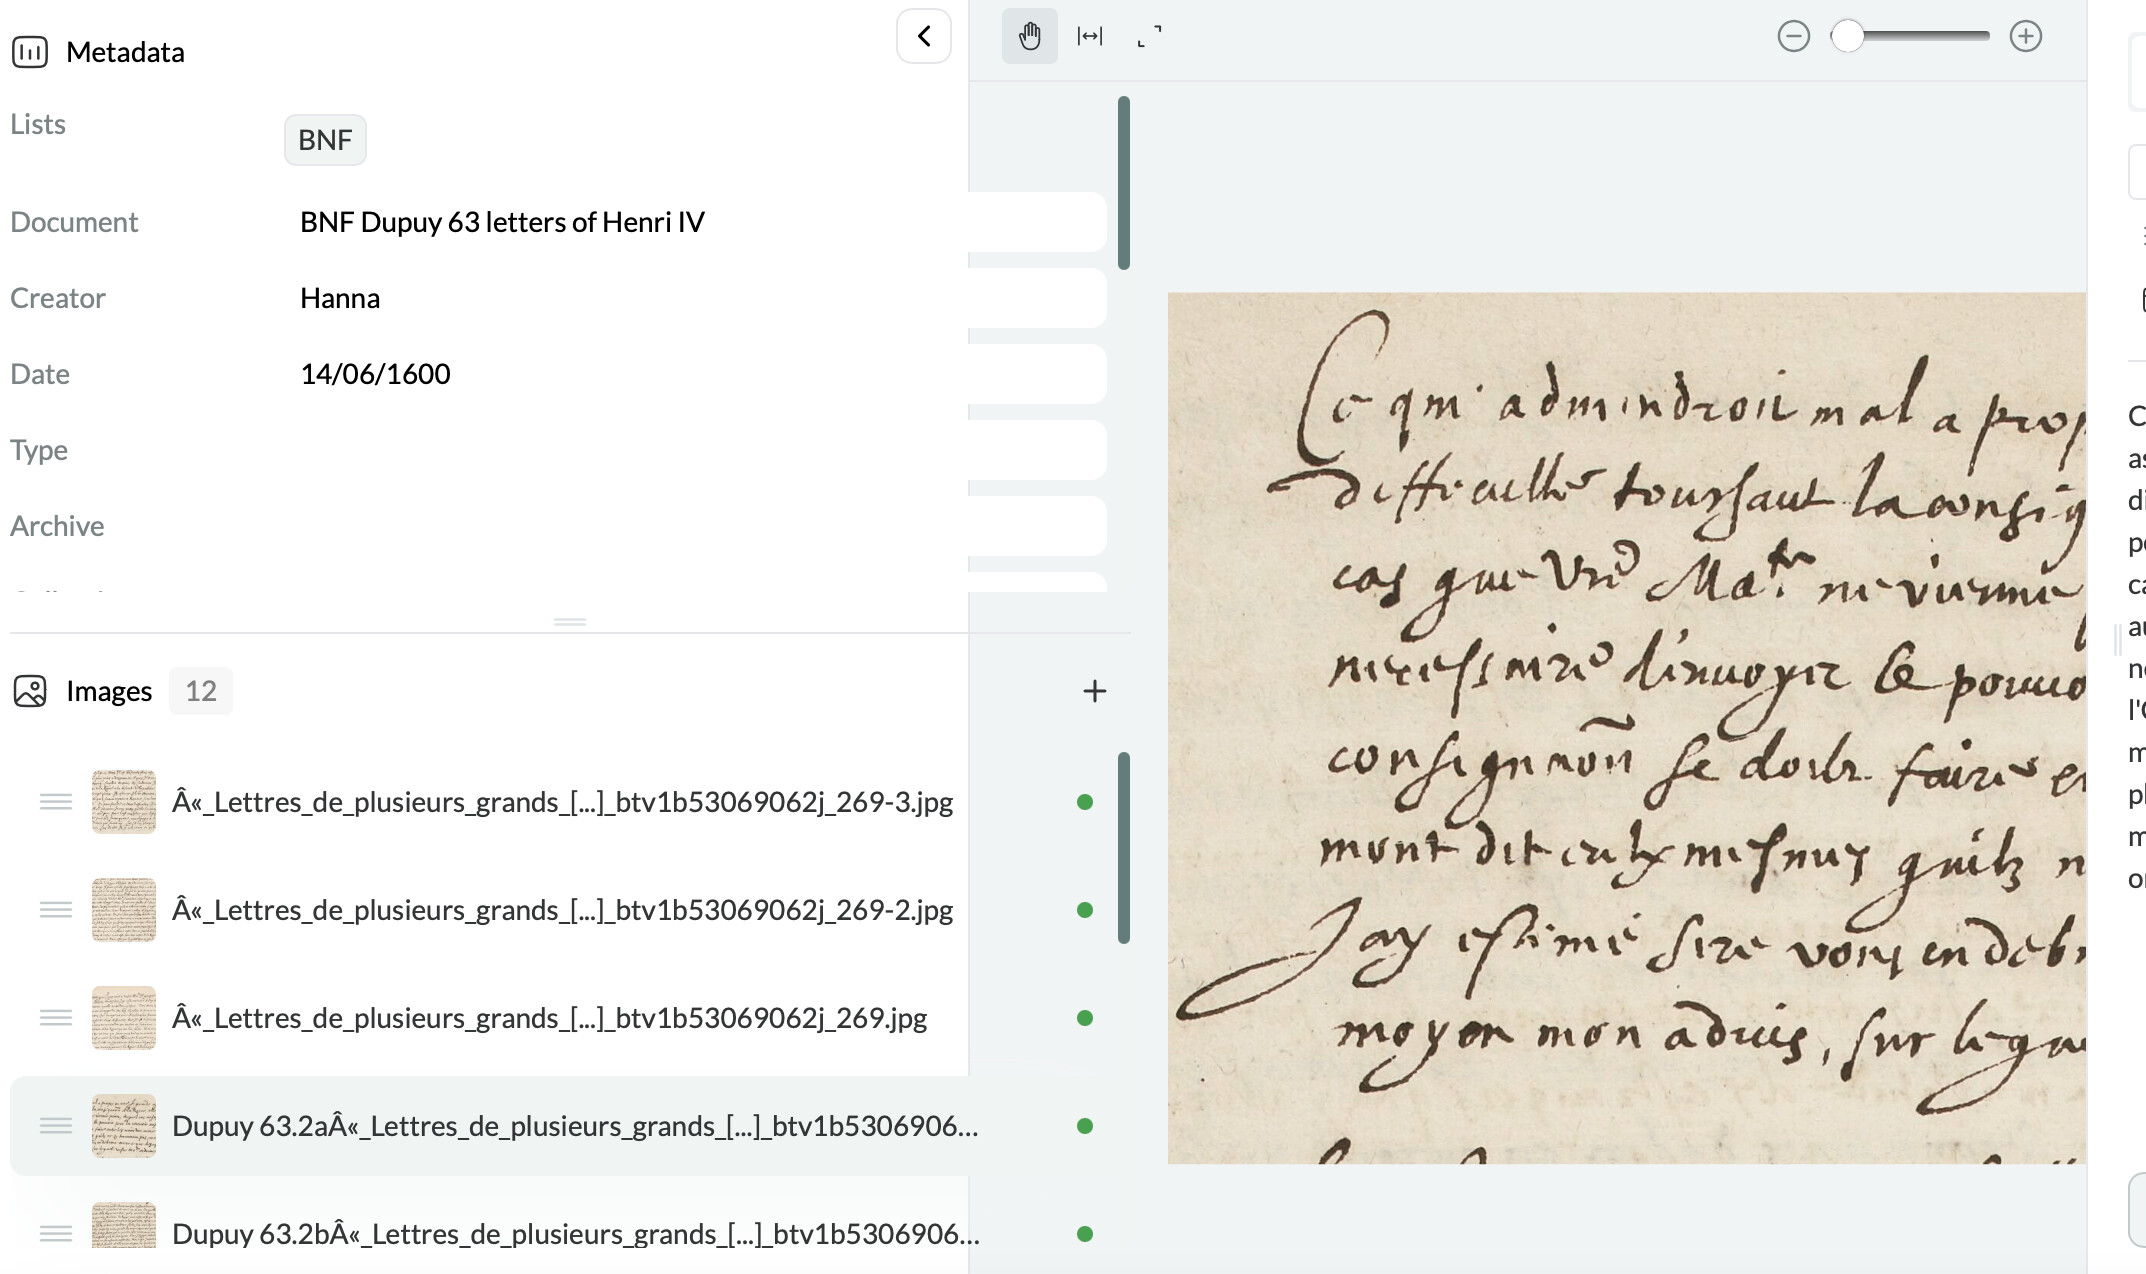 Metadata
Lists
BNF
Document
BNF Dupuy 63 letters of Henri IV
Creator
Hanna
Date
14/06/1600
Type
Archive
Images 12
Â«_Lettres_de_plusieurs_grands_[...]_btv1b53069062j_269-3.jpg
Â«_Lettres_de_plusieurs_grands_[...]_btv1b53069062j_269-2.jpg
Â«_Lettres_de_plusieurs_grands_[...]_btv1b53069062j_269.jpg
Dupuy 63.2aÂ«_Lettres_de_plusieurs_grands_[...]_btv1b5306906...
Dupuy 63.2bÂ«_Lettres_de_plusieurs_grands_[...]_btv1b5306906...
Ce qui adviendroit mal a
toussaut la
cas que vre Ma.te ne vienne
necessaire d'envoyer le
se doibt faire
mont dit eulx mesmes quilz
Jay estimé sire
moyen mon advis, sur
C
as
di
pe
ca
au
ne
l'
m
pl
m
o